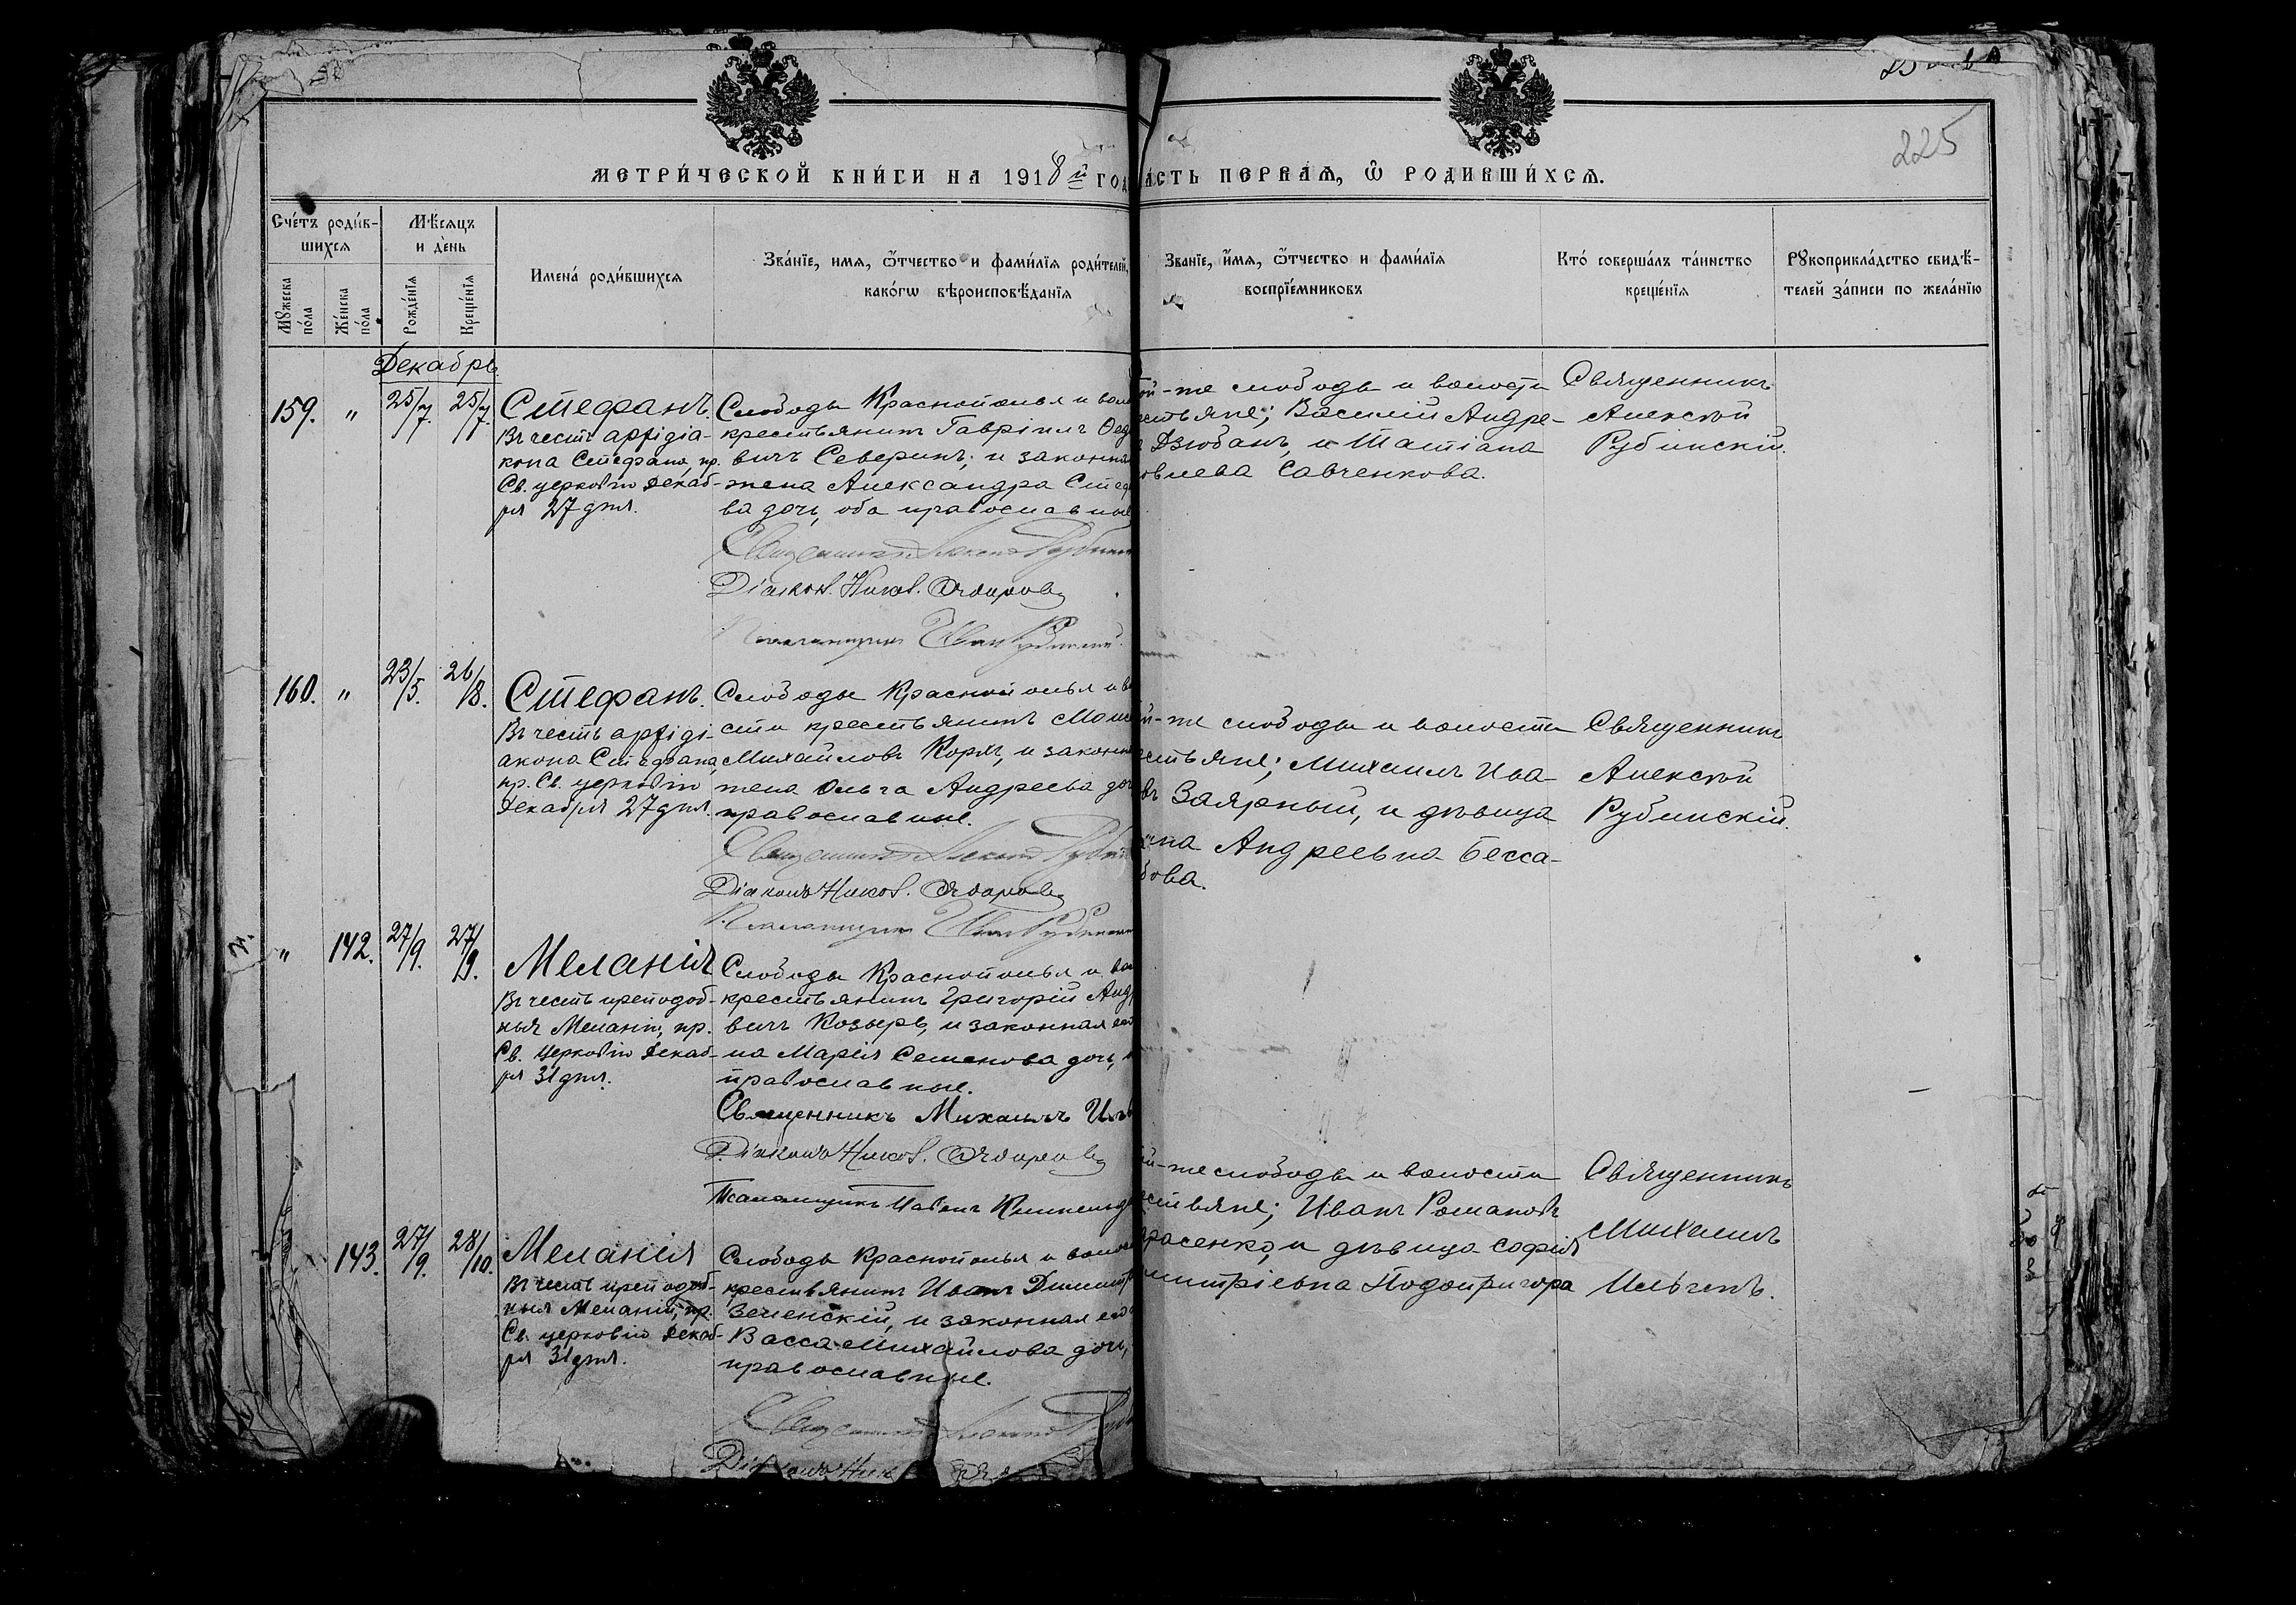 225
МЕТРИ́ЧЕСКОЙ КНИ́ГИ НА 1918й ГОД
А́СТЬ ПЕРВАѦ, Ѡ РОДИВШИ́ХСѦ.
Сче́тъ роди́в-
шихсѧ
Мѣ́сѧцъ
и де́нь
Мꙋжеска
по́ла
Же́нска
по́ла
Рожде́нїѧ
Креще́нїѧ
Имена́ роди́вшихсѧ
Зва́нїе, имѧ, ѿтчество и фами́лїѧ роди́телей,
како́гѡ вѣроисповѣ́данїѧ
Званїе, и́мѧ, ѿтчество и фами́лїѧ
воспрїе́мниковъ
Кто́ соверша́лъ та́инство
креще́нїѧ
Рꙋкоприкла́дство свидѣ́-
телей за́писи по жела́нїю
Декабрь
159. " 25/7. 25/7.
Стефанъ.
Въ честь архидіа-
кона Стефана, пр.
Св. церковію Декаб-
ря 27 дня.
Слободы Краснополья и вол
крестьянинъ Гавріилъ Ѳед
вичъ Северинъ; и законная
жена Александра Стеф
ва дочь, оба православные
Діаконъ Никол.
Псаломщикъ Иван Рубинскій.
ой-же слободы и волости
естьяне; Василій Андре-
Дзюбанъ, и Татіана
овлева Савченкова.
Священникъ
Алексѣй
Рубинскій.
160. " 23/5. 26/8.
Стефанъ.
Въ честь архиді-
акона Стефана,
пр. Св. церковію
Декабря 27 дня.
Слободы Краснополья и в
сти крестьянинъ
Михайловъ Коржъ, и законн
жена Ольга Андреева доч
православные.
Діаконъ Никол.
Псаломщикъ Иван Рубинскій
й-же слободы и волости
естьяне; Михаилъ Ива-
въ Заярный, и дѣвица
нна Андреевна Бесса-
бова.
Священникъ
Алексѣй
Рубинскій.
" 142. 27/9. 27/9.
Меланія
Въ честь преподоб-
ныя Меланіи, пр.
Св. Церковію Декаб-
ря 31 дня.
Слободы Краснополья и во
крестьянинъ Григорій Анд
вичъ Козырь, и законная его
на Марія Семенова дочь,
православные.
Священникъ Михаилъ Иль
Діаконъ Никол.
Псаломщикъ
ой-же слободы и волости
естьяне; Иванъ Романовъ
расенко, и дѣвица Софія
митріевна Подопригора
Священникъ
Михаилъ
Ильченъ.
143. 27/9. 28/10.
Меланія
Въ честь преподоб-
ныя Меланіи, пр.
Св. церковію Декаб-
ря 31 дня.
Слободы Краснополья и волос
крестьянинъ Иванъ Димитр
Зеленскій, и законная его
Васса Михайлова дочь,
православные.
Діаконъ Ник